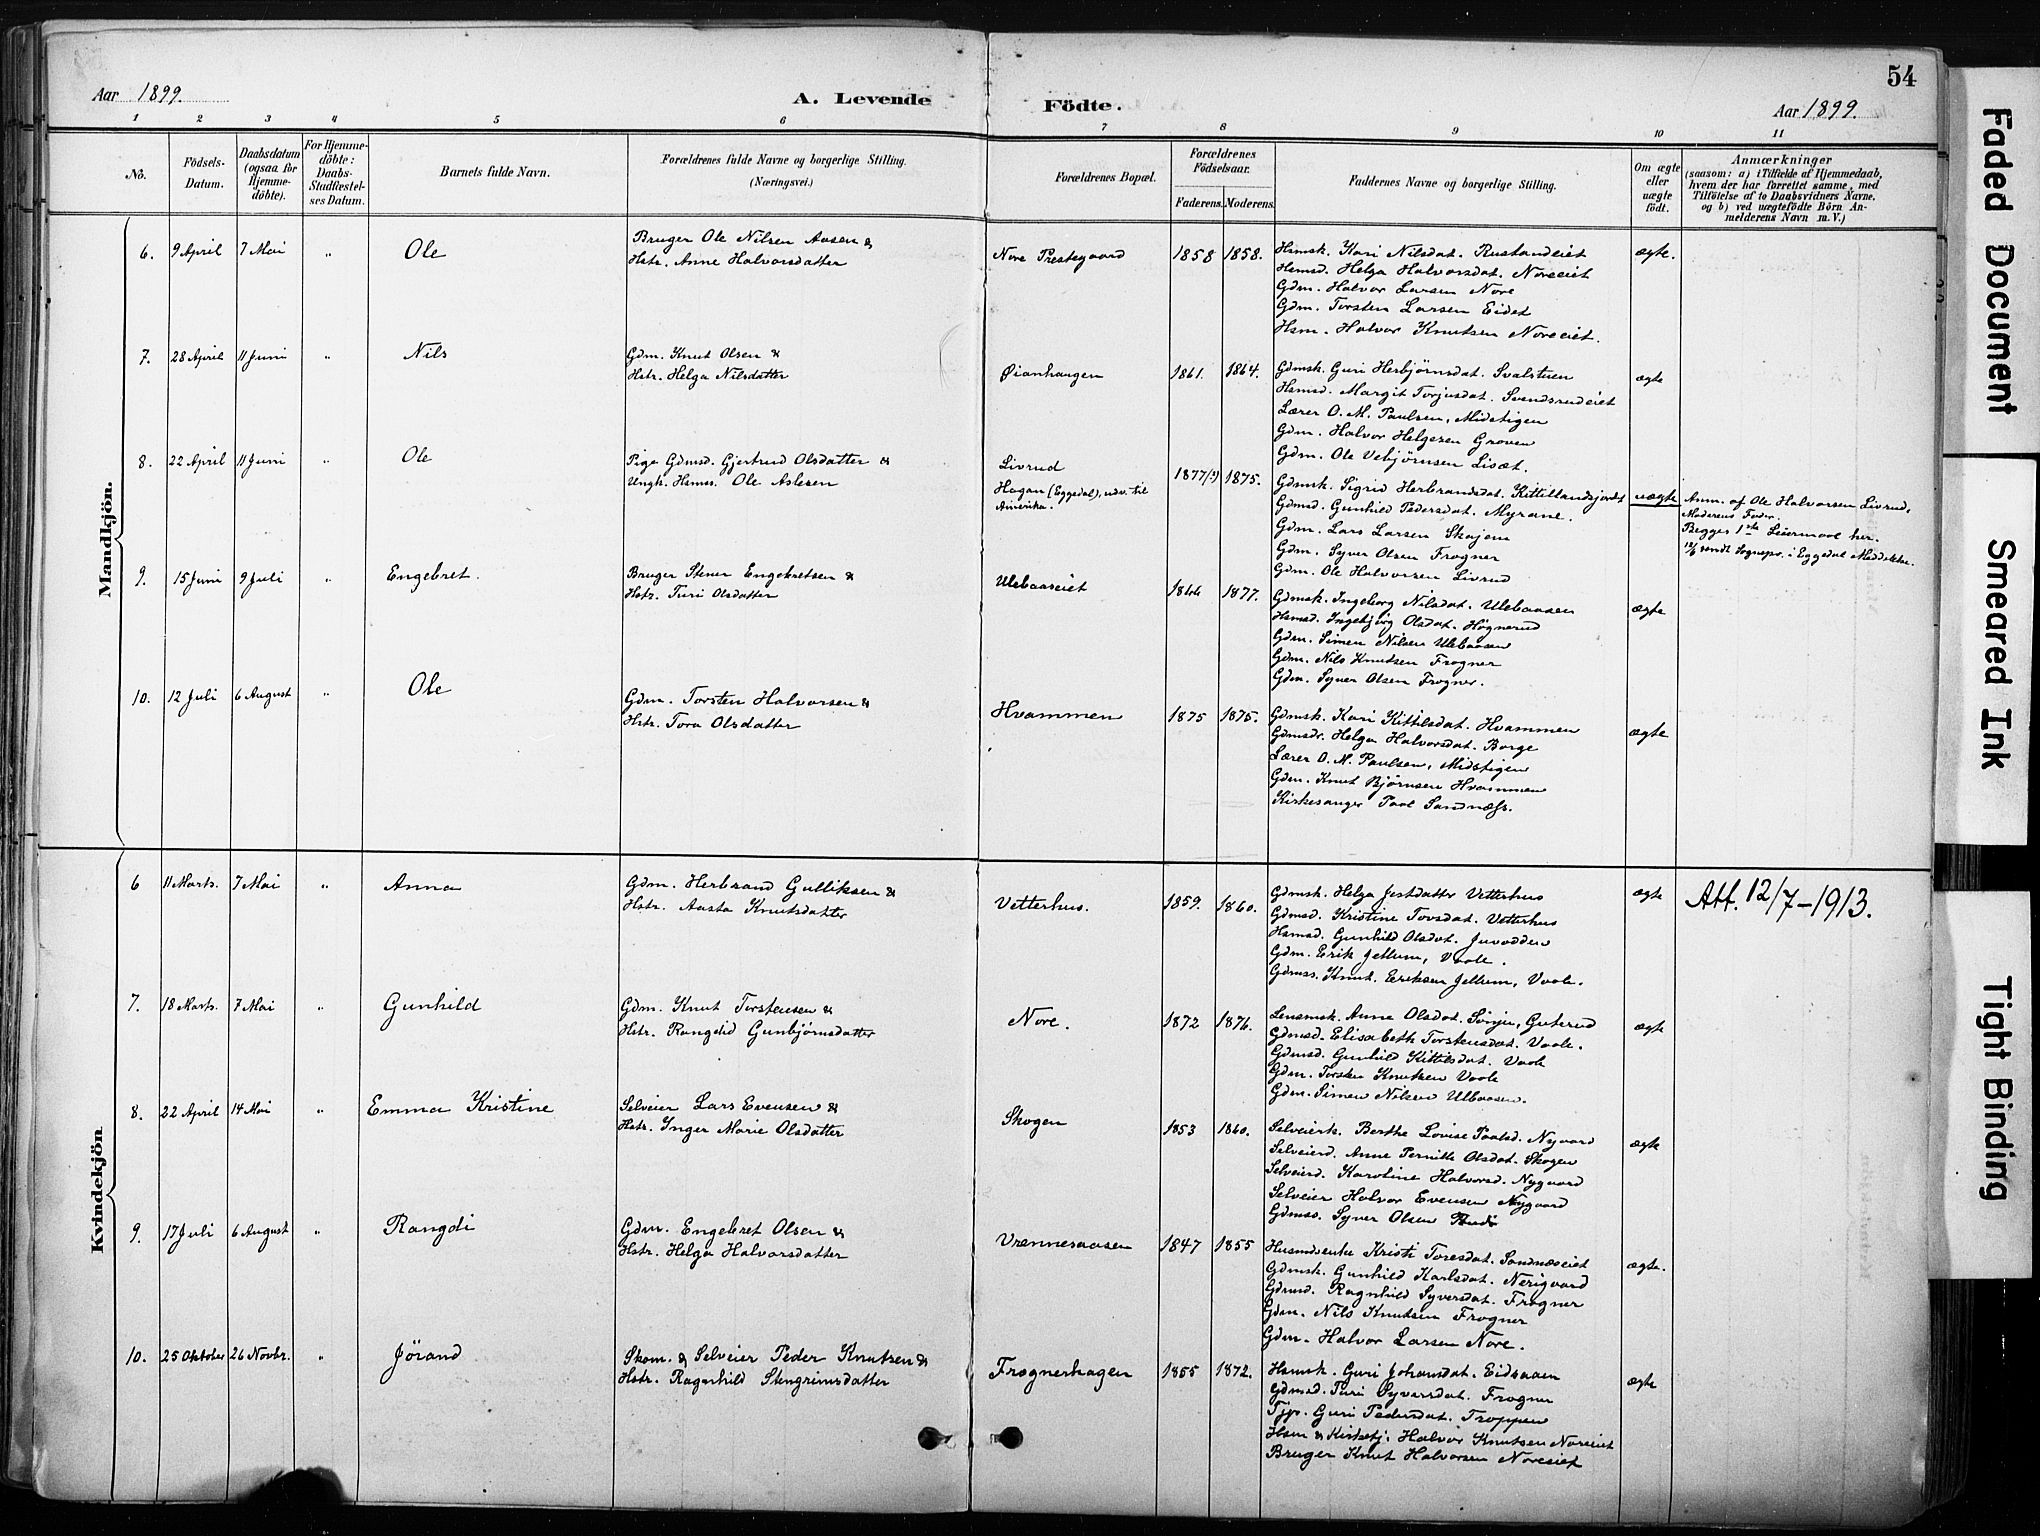 54
Aar 1899.
A. Levende Födte.
Aar 1899.
1 2 3 4 5 6 7 8 9 10 11
No.
Födsels-
Datum.
Daabsdatum
(ogsaa for
Hjemme-
döbte).
For Hjemme-
döbte:
Daabs-
Stadfæstel-
ses Datum.
Barnets fulde Navn.
Forældrenes fulde Navne og borgerlige Stilling.
(Næringsvei.)
Forældrenes Bopæl.
Forældrenes
Födselsaar.
Faderens. Moderens.
Faddernes Navne og borgerlige Stilling.
Om ægte
eller
uægte
födt.
Anmærkninger
(saasom: a) i Tilfælde af Hjemmedaab,
hvem der har forrettet samme, med
Tilföielse af to Daabsvidners Navne,
og b) ved uægtefödte Börn An-
melderens Navn m. V.)
Mandkjön.
6. 9 April 7 Mai " Ole
Bruger Ole Nilsen Aasen &
Hstr. Anne Halvorsdatter
Nore Prestegaard 1858 1858.
Hsmsk. Kari Nilsdat. Rustandeiet
Hsmsd. Helga Halvorsdat. Noreeiet
Gdm. Halvor Larsen Nore
Gdm. Torsten Larsen Eidet
Hsm. Halvor Knutsen Noreeiet.
ægte.
7. 28 April 11 Juni " Nils
Gdm. Knut Olsen &
Hstr. Helga Nilsdatter
Øianhaugen 1861. 1864.
Gdmsk. Guri Herbjørnsdat. Svalstuen
Hsmsd. Margit Torjusdat. Svendsrudeiet
Lærer O. M. Paulsen, Midstigen
Gdm. Halvor Helgesen Groven
Gdm. Ole Vebjørnsen Lisæt.
ægte
8. 22 April 11 Juni " Ole
Pige Gdmsd. Gjertrud Olsdatter &
Ungk. Hsmss. Ole Aslesen
Livrud
Hagan (Eggedal), udv. til
Amerika.
1877(?) 1875.
Gdmsk. Sigrid Herbrandsdat. Kittillandsjordet
Gdmsd. Gunhild Pedersdat. Myrane.
Gdm. Lars Larsen Skajem
Gdm. Syver Olsen Frogner
Gdm. Ole Halvorsen Livrud
uægte
Anm. af Ole Halvorsen Livrud,
Moderens Fader.
Begges 1ste Leiermaal her.
12/6 sendt Sognepr. i Eggedal Meddelelse.
9. 15 Juni 9 Juli " Engebret.
Bruger Stener Engebretsen &
Hstr. Turi Olsdatter
Ulebaaseiet 1844 1877.
Gdmsk. Ingeborg Nilsdat. Ulebaasen
Hsmsd. Ingebjørg Olsdat. Høgnerud
Gdm. Simen Nilsen Ulebaasen
Gdm. Nils Knutsen Frogner
Gdm. Syver Olsen Frogner.
ægte
10. 12 Juli 6 August " Ole
Gdm. Torsten Halvorsen &
Hstr. Tora Olsdatter
Hvammen 1875 1875.
Gdmsk. Kari Kittilsdat. Hvammen
Gdmsdr. Helga Halvorsdat. Borge
Lærer O. M. Paulsen, Midstigen
Gdm. Knut Bjørnsen Hvammen
Kirkesanger Paal Sandnæs.
ægte
Kvindekjön
6 11 Marts. 7 Mai " Anna
Gdm. Herbrand Gulliksen &
Hstr. Aasta Knutsdatter
Vetterhus. 1859. 1860.
Gdmsk. Helga Jostdatter Vetterhus
Gdmsd. Kristine Tovsdat. Vetterhus
Hsmsd. Gunhild Olsdat. Juvodden
Gdm. Erik Jellum, Vaale.
Gdmss. Knut Eriksen Jellum, Vaale.
ægte
Att. 12/7-1913.
7. 18 Marts. 7 Mai " Gunhild
Gdm. Knut Torstensen &
Hstr. Rangdid Gunbjørnsdatter
Nore. 1872 1876.
Lensmsk. Anne Olsdat. Sønju, Guterud
Gdmsd. Elisabeth Torstensdat. Vaale.
Gdmsd. Gunhild Kittilsdat. Vaale
Gdm. Torsten Knutsen Vaale
Gdm. Simen Nilsen Ulbaasen.
ægte
8. 22 April 14 Mai " Emma Kristine
Selveier Lars Evensen &
Hstr. Inger Marie Olsdatter
Skogen 1853 1860.
Selveierk. Berthe Lovise Paalsd. Nygaard
Selveierd. Anne Pernille Olsdat. Skogen
Selveierd. Karoline Halvorsd. Nygaard
Selveier Halvor Evensen Nygaard
Gdmss. Syver Olsen Rudi
ægte
9. 17 Juli 6 August " Rangdi
Gdm. Engebret Olsen &
Hstr. Helga Halvorsdatter
Vrænnesaasen 1847 1855
Husmdsenke Kristi Toresdat. Sandnæseiet
Gdmsk. Gunhild Karlsdat. Nerigaard
Gdmsd. Ragnhild Syversdat. Frogner
Gdm. Nils Knutsen Frogner
Gdm. Halvor Larsen Nore.
ægte.
10. 25 Oktober 26 Novbr. " Jörand
Skom. & Selveier Peder Knutsen &
Hstr. Ragnhild Stengrimsdatter
Frognerhagen 1855 1872.
Hsmsk. Guri Johansdat. Eidsaaen
Gdmsd. Turi Syversdat. Frogner
Tjp. Guri Pedersdat. Troppen
Hsm & Kirketj. Halvor Knutsen Noreeiet
Bruger Knut Halvorsen Noreeiet
ægte
Faded Document
Smeared Ink
Tight Binding